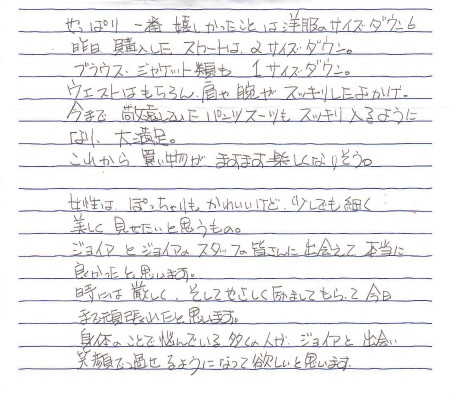 やっぱり 一番 嬉しかったことは洋服のサイズダウン。
昨日 購入した スカートは、2サイズダウン。
ブラウス・ジャケット類も 1サイズダウン。
ウエストはもちろん、肩や腕が スッキリしたおかげ。
今まで 敬遠していた パンツスーツも スッキリ入るように
なり、大満足。
これから 買い物が ますます 楽しくなりそう。
女性は ぽっちゃりも かわいいけど、少しでも細く
美しく 見せたいと思うもの。
ジョイアとジョイアのスタッフの皆さんに 出会えて 本当に
良かったと 思います。
時には 厳しく、そしてやさしく 励ましてもらって 今日
まで頑張れたと思います。
身体のことで悩んでいる 多くの人が ジョイアと 出会い
笑顔で過せるようになって欲しいと思います